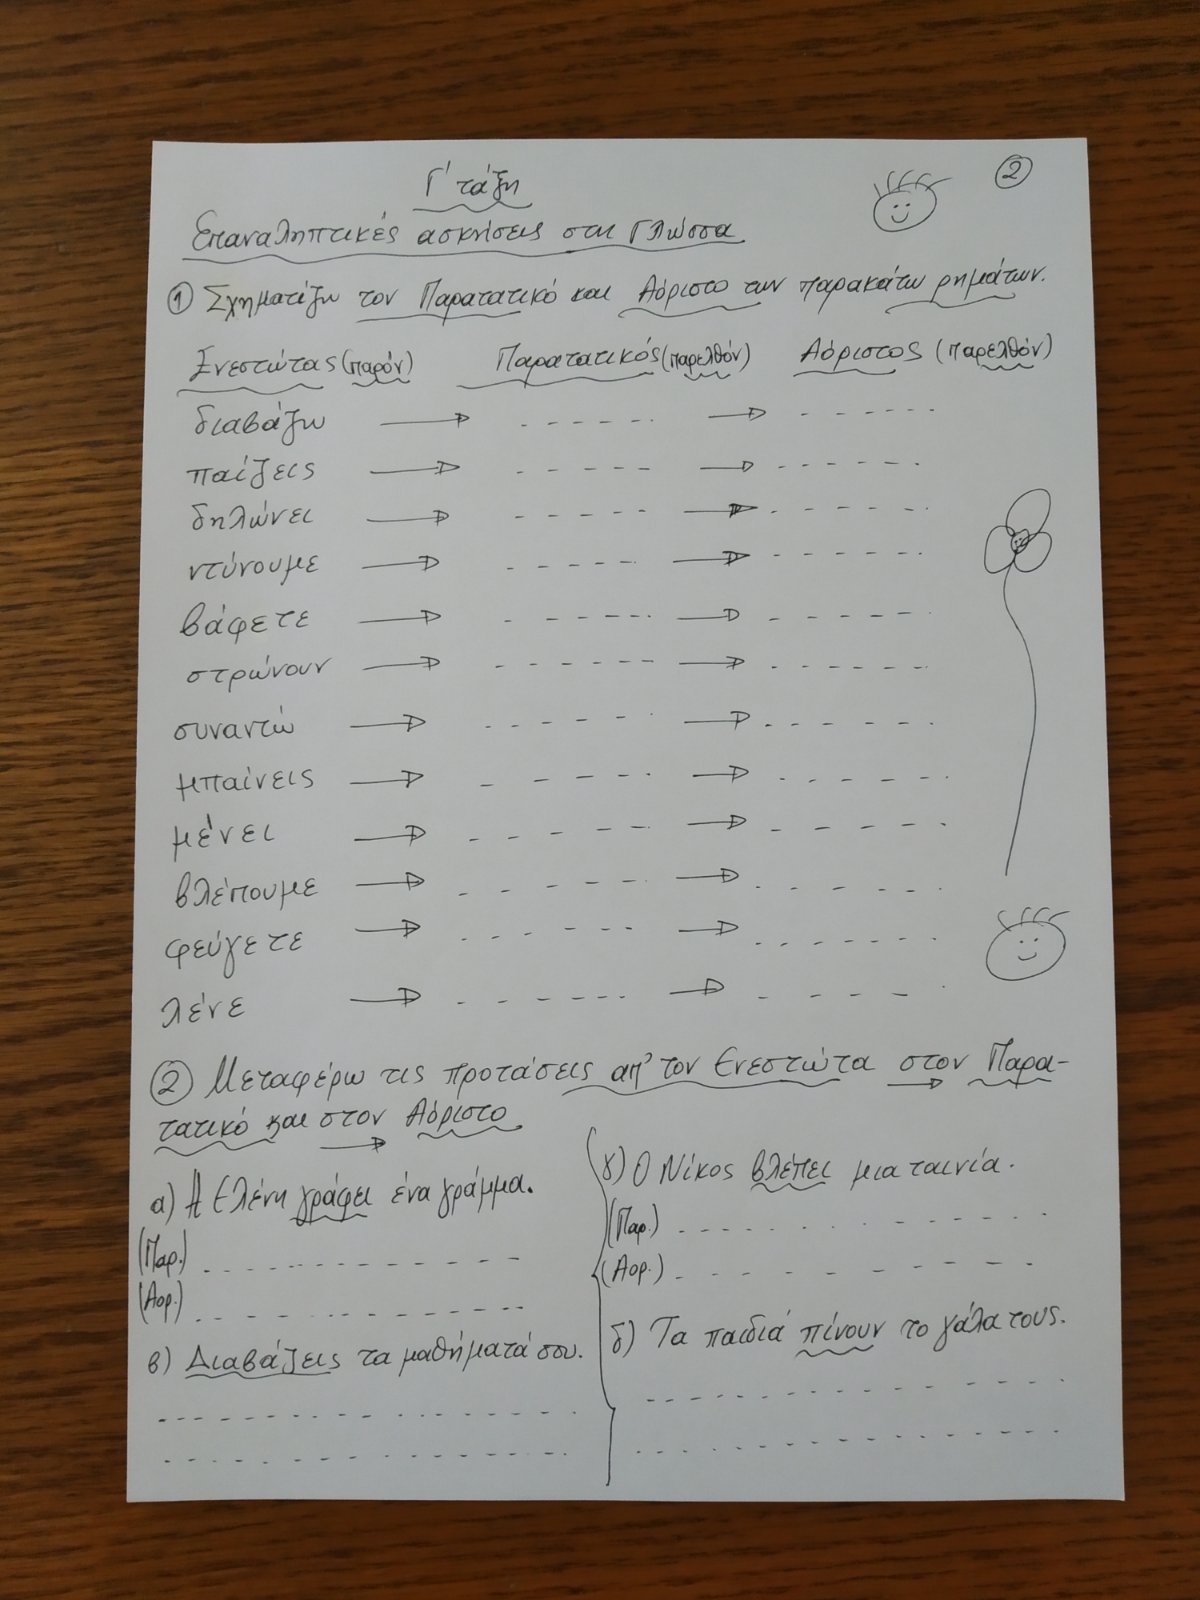 Γ' τάξη
②
Επαναληπτικές ασκήσεις στη Γλώσσα
① Σχηματίζω τον Παρατατικό και Αόριστο των παρακάτω ρημάτων.
Ενεστώτας (παρόν) Παρατατικός (παρελθόν) Αόριστος (παρελθόν)
διαβάζω
παίζεις
δηλώνει
ντύνουμε
βάφετε
στρώνουν
συναντώ
μπαίνεις
μένει
βλέπουμε
φεύγετε
λένε
② Μεταφέρω τις προτάσεις απ' τον Ενεστώτα στον Παρα-
τατικό και στον Αόριστο
α) Η Ελένη γράφει ένα γράμμα.
(Παρ.)
(Αορ.)
β) Διαβάζεις τα μαθήματά σου.
γ) Ο Νίκος βλέπει μια ταινία.
(Παρ.)
(Αορ.)
δ) Τα παιδιά πίνουν το γάλα τους.